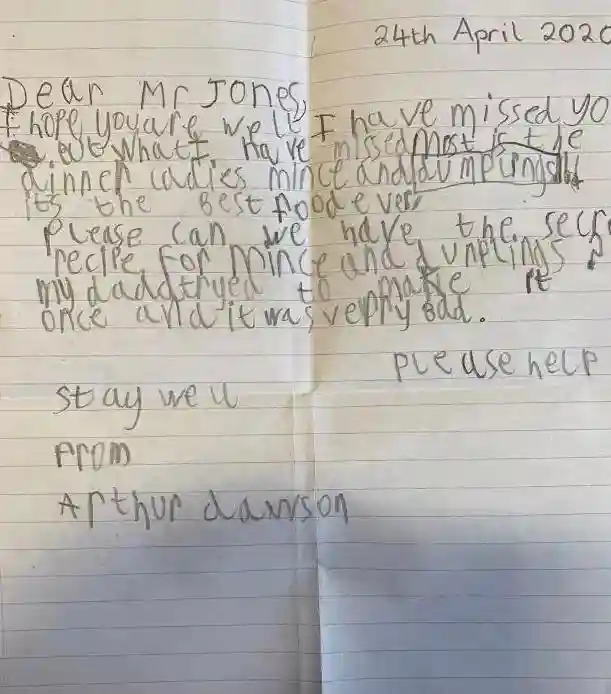 24th April 2020
Dear Mr Jones,
I hope you are well I have missed yo
but what I have missed most is the
dinner ladies mince and dumplings!!!
its the best flood ever
please can we have the secr
recipe for mince and dunplings?
my dadd tryed to make it
once and it was verry bad.
please help
stay well
from
Arthur dawson